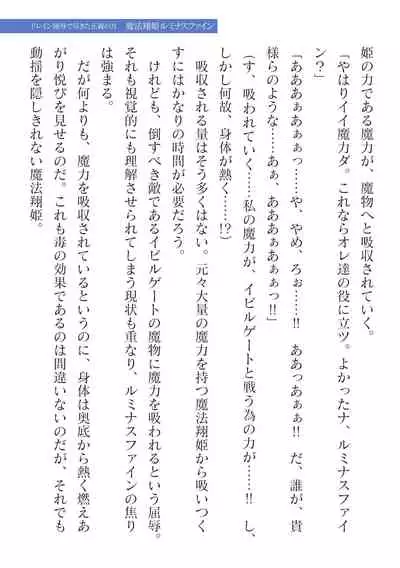 ドレイン凌辱で尽きた正義の力　魔法翔姫ルミナスファイン
姫の力である魔力が、魔物へと吸収されていく。
「やはりイイ魔力ダ。これならオレ達の役に立ツ。よかったナ、ルミナスファイ
ン？」
「あああぁあぁぁっ……や、やめ、ろぉ……!!　ああっあぁぁ!!　だ、誰が、貴
様らのような……あぁ、あああぁあぁぁっ!!」
（す、吸われていく……私の魔力が、イビルゲートと戦う為の力が……!!　し、
しかし何故、身体が熱く……!?）
　吸収される量はそう多くはない。元々大量の魔力を持つ魔法翔姫から吸いつく
すにはかなりの時間が必要だろう。
　けれども、倒すべき敵であるイビルゲートの魔物に魔力を吸われるという屈辱。
それも視覚的にも理解させられてしまう現状も重なり、ルミナスファインの焦り
は強まる。
　だが何よりも、魔力を吸収されているというのに、身体は奥底から熱く燃えあ
がり悦びを見せるのだ。これも毒の効果であるのは間違いないのだが、それでも
動揺を隠しきれない魔法翔姫。